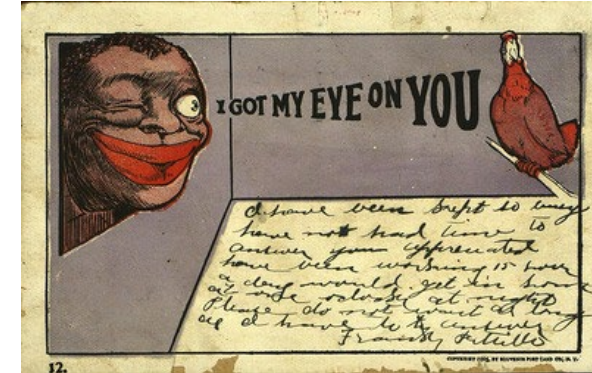 I GOT MY EYE ON YOU
I have been kept so busy
have not had time to
answer your appreciated
have been working 15 hour
a day would get in home
at o'clock at night
Please do not wait a long
as I have to to answer
Frank
COPYRIGHT BY SOUVENIR POST CARD CO., N. Y.
12.